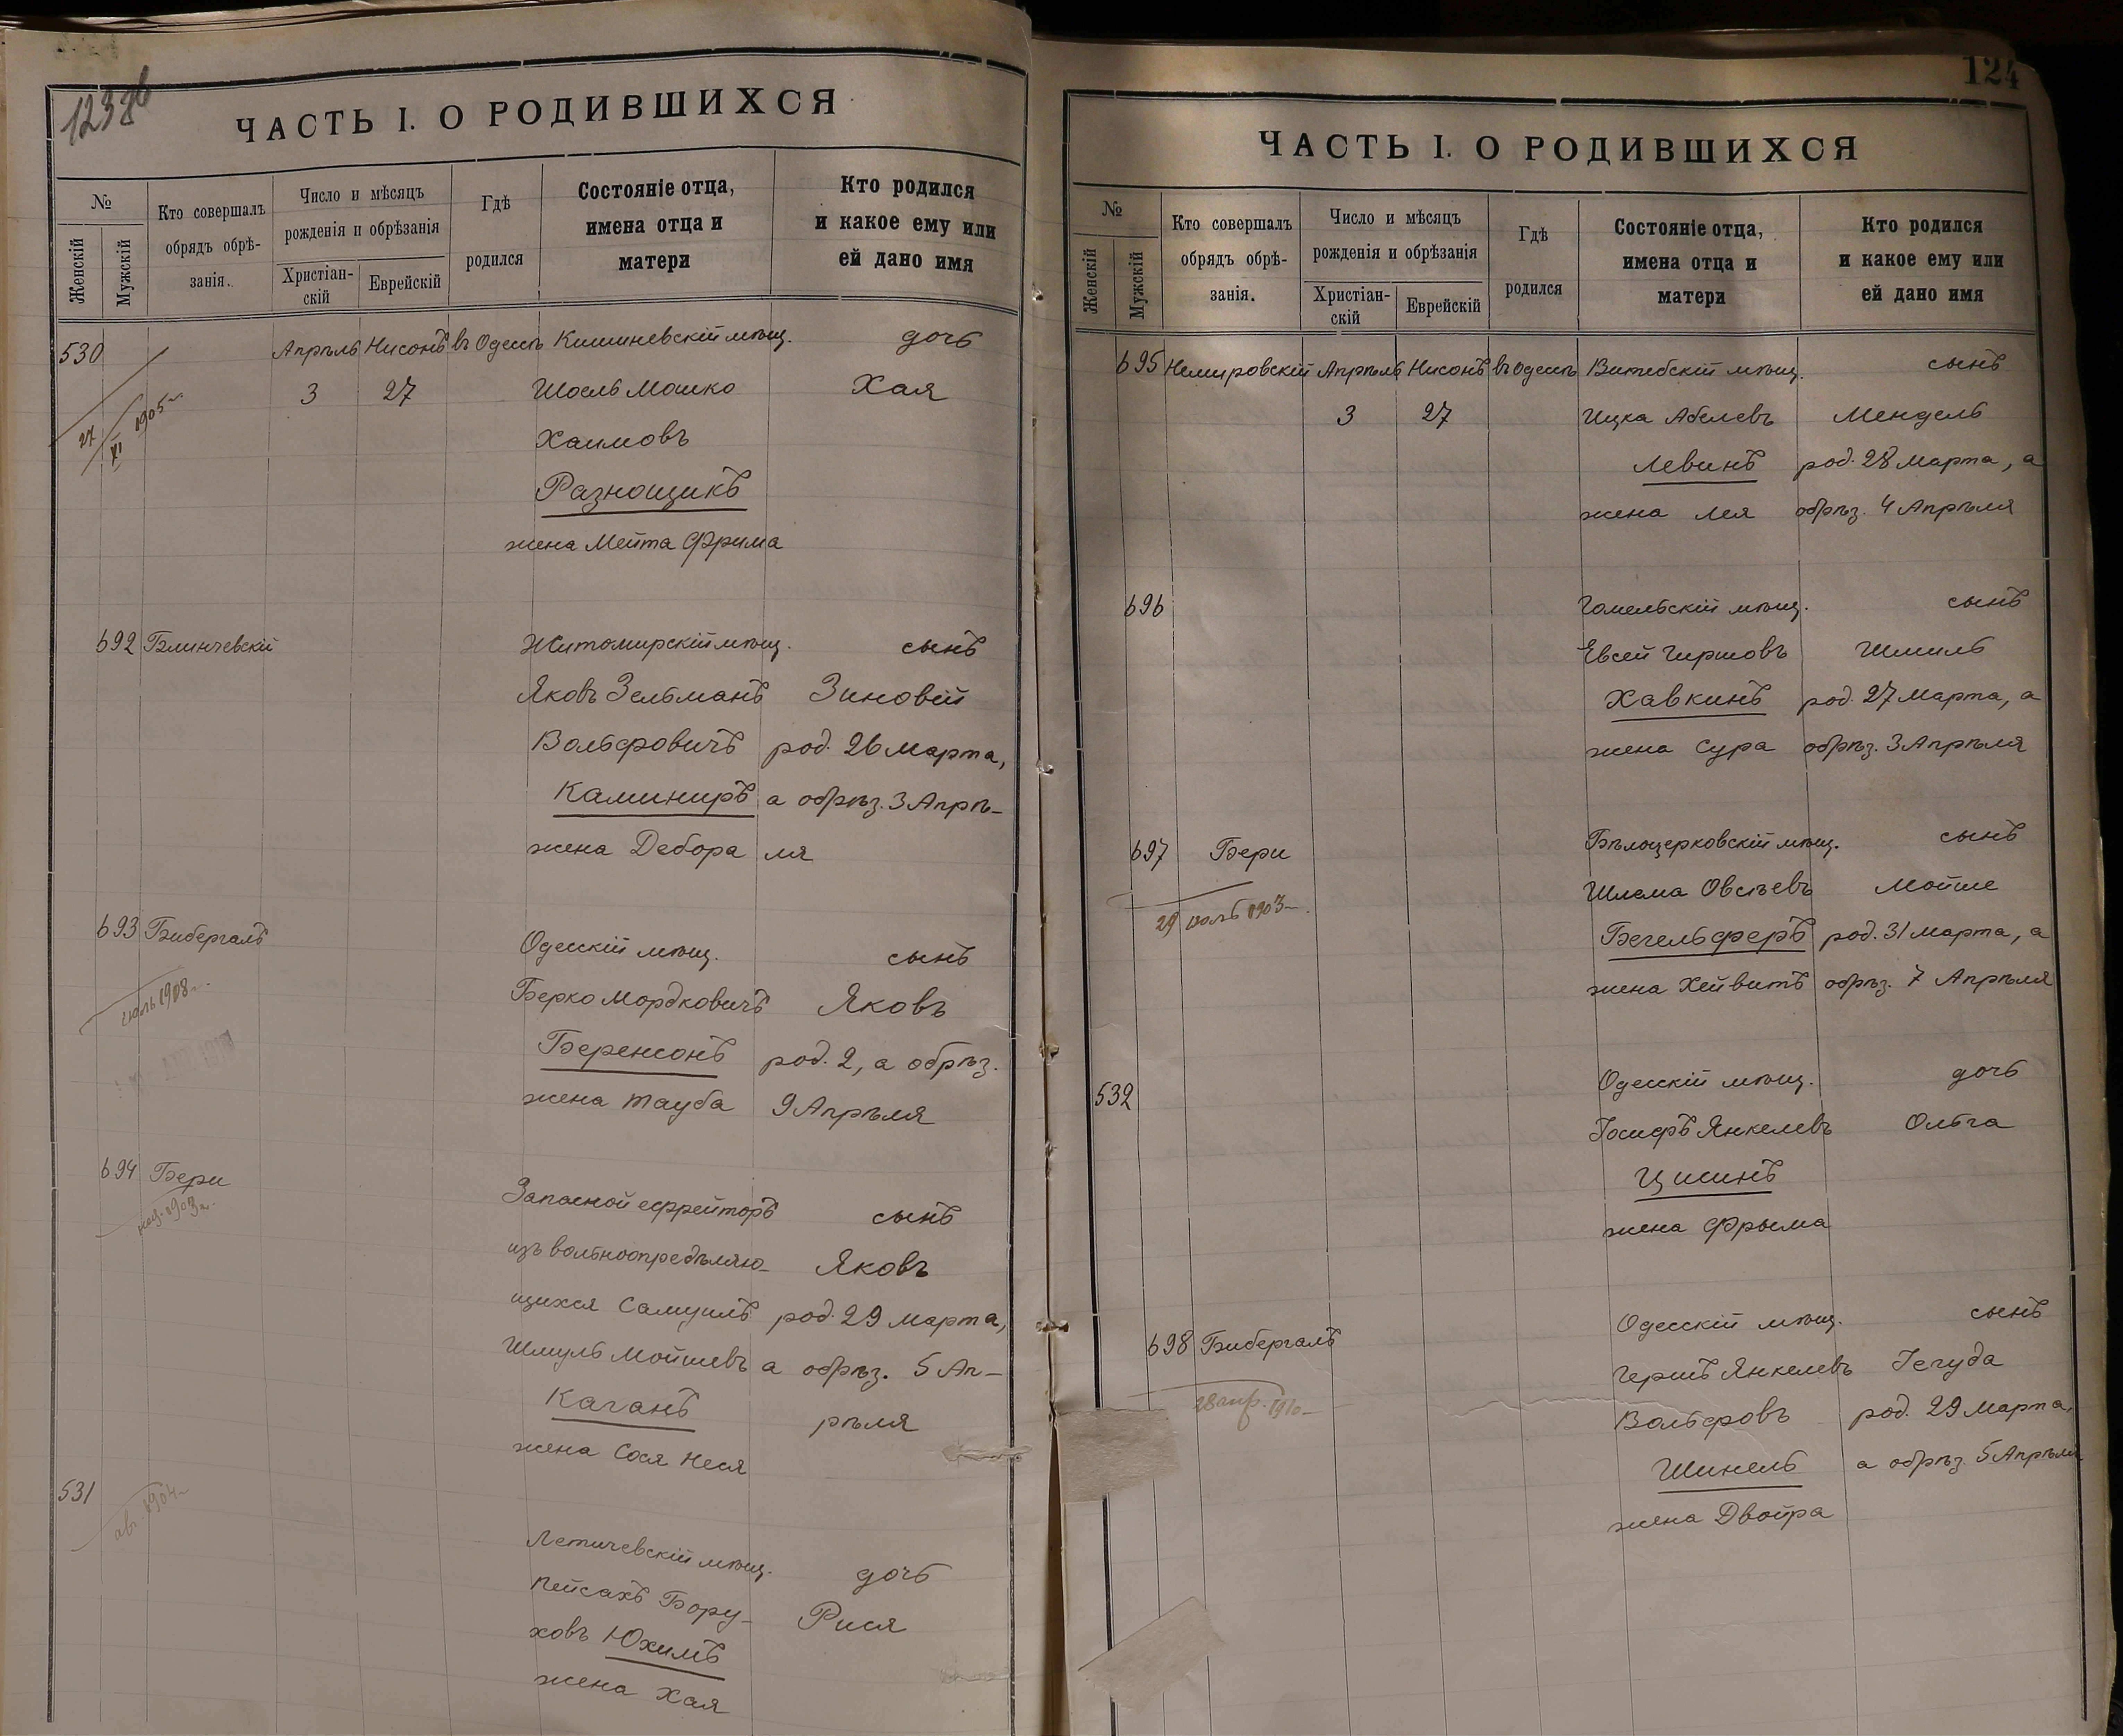 123об
ЧАСТЬ I. О РОДИВШИХСЯ
№
Женскій
Мужскій
Кто совершалъ
обрядъ обрѣ-
занія.
Число и мѣсяцъ
рожденія и обрѣзанія
Христіан-
скій
Еврейскій
Гдѣ
родился
Состояніе отца,
имена отца и
матери
Кто родился
и какое ему или
ей дано имя
530 Апрѣль Нисонъ въ Одессѣ Кишиневскій мѣщ. дочь
3 27 Шоель Мошко Хая
27/XI 1905 г.
Хаимовъ
Разнощикъ
жена Мейта Фрима
692 Блинчевскій Житомирскій мѣщ. сынъ
Яковъ Зельманъ Зиновій
Вольфовичъ род. 26 марта,
Каминиръ а обрѣз. 3 Апрѣ-
жена Дебора ля
693 Бибергалъ Одесскій мѣщ. сынъ
Берко Мордковичъ Яковъ
1908
Беренсонъ род. 2, а обрѣз.
жена Тауба 9 Апрѣля
694 Бери Запасной ефрейторъ сынъ
1903 г.
изъ вольноопредѣляю- Яковъ
щихся Самуилъ род. 29 марта,
Шмуль Мойшевъ а обрѣз. 5 Ап-
Каганъ рѣля
жена Сося Неся
531
авг. 1904
Летичевскій мѣщ. дочь
Пейсахъ Бору- Рися
ховъ Юхимъ
жена Хая
124
ЧАСТЬ I. О РОДИВШИХСЯ
№
Женскій
Мужскій
Кто совершалъ
обрядъ обрѣ-
занія.
Число и мѣсяцъ
рожденія и обрѣзанія
Христіан-
скій
Еврейскій
Гдѣ
родился
Состояніе отца,
имена отца и
матери
Кто родился
и какое ему или
ей дано имя
695 Немировскій Апрѣль Нисонъ въ Одессѣ Витебскій мѣщ. сынъ
3 27 Ицка Абелевъ Мендель
Левинъ род. 28 марта, а
жена Лея обрѣз. 4 Апрѣля
696 Гомельскій мѣщ. сынъ
Евсей Гиршовъ Шмиль
Хавкинъ род. 27 марта, а
жена Сура обрѣз. 3 Апрѣля
697 Бери Бѣлоцерковскій мѣщ. сынъ
Шлема Овсѣевъ Мойше
29 1903
Бегельферъ род. 31 марта, а
жена Хейвитъ обрѣз. 7 Апрѣля
532 Одесскій мѣщ. дочь
Іосифъ Янкелевъ Ольга
Цисинъ
жена Фрыма
698 Бибергалъ Одесскій мѣщ. сынъ
Гершъ Янкелевъ Іегуда
28 апр. 1910
Вольфовъ род. 29 марта,
Шинель а обрѣз. 5 Апрѣля
жена Двойра